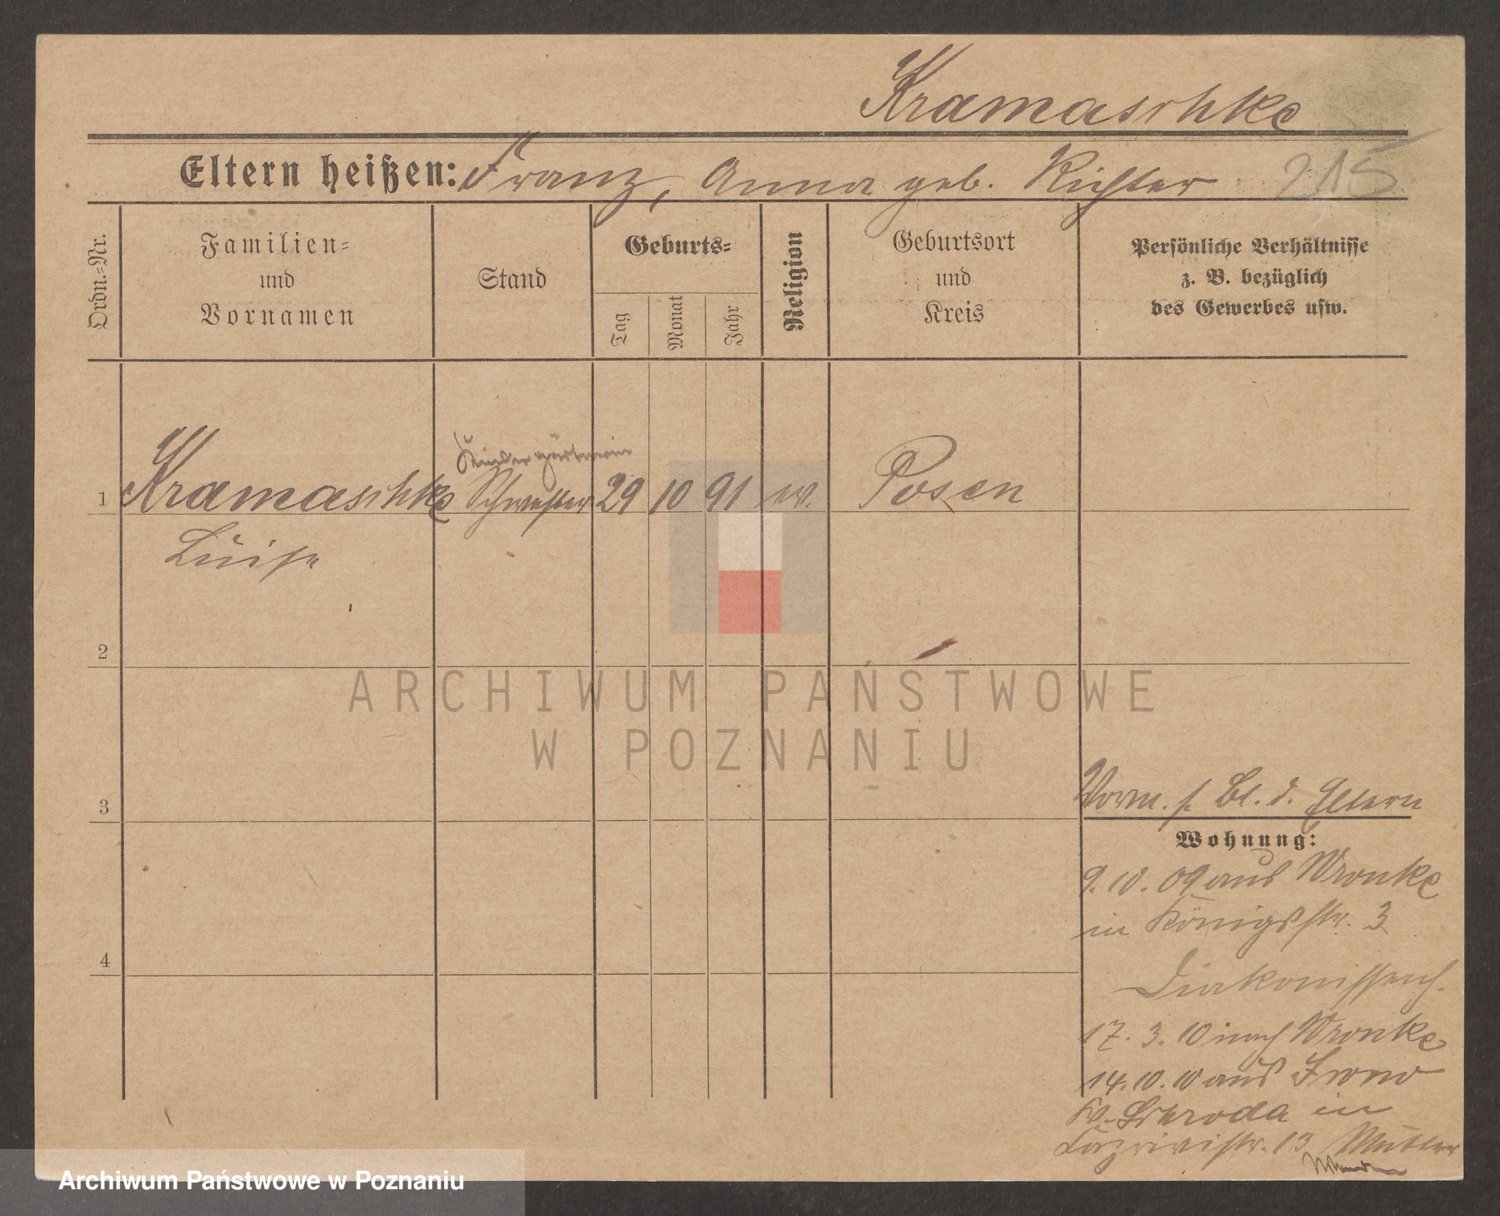 Kramaschke
Eltern heißen: Franz, Anna geb. Richter
215
Ordn.-Nr.
Familien-
und
Vornamen
Stand
Geburts-
Tag
Monat
Jahr
Religion
Geburtsort
und
Kreis
Persönliche Verhältnisse
z. B. bezüglich
des Gewerbes usw.
Kindergärtnerin
1 Kramaschke Schwester 29 10 91 ev. Posen
Luise
2
ARCHIWUM PAŃSTWOWE
W POZNANIU
3
Vorm. s. Bl. d. Eltern
Wohnung:
9.10.09 aus Wronke
in Königsstr. 3
4
Diakonissenh.
17.3.10 nach Wronke
14.10.10 aus
Kr. Schroda in
13 Mutter
Archiwum Państwowe w Poznaniu